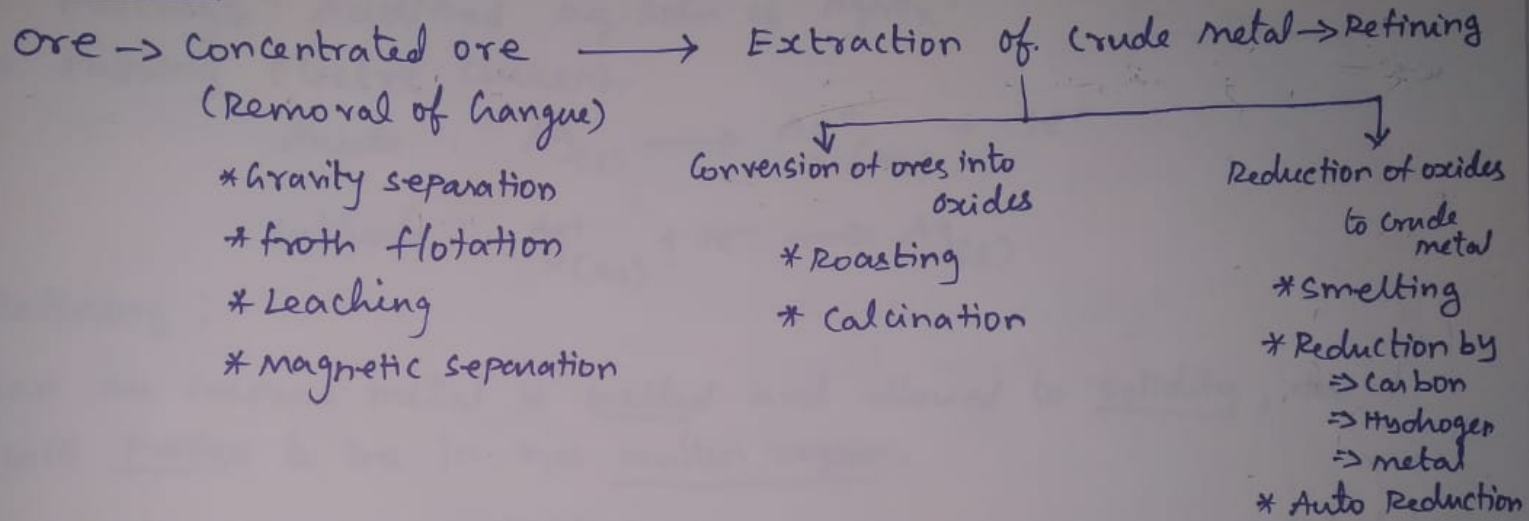 ore -> Concentrated ore -> Extraction of crude metal -> Refining
(Removal of Gangue)
* Gravity separation
* froth flotation
* Leaching
* Magnetic separation
Conversion of ores into
oxides
* Roasting
* Calcination
Reduction of oxides
to crude
metal
* Smelting
* Reduction by
=> Carbon
=> Hydrogen
=> metal
* Auto Reduction